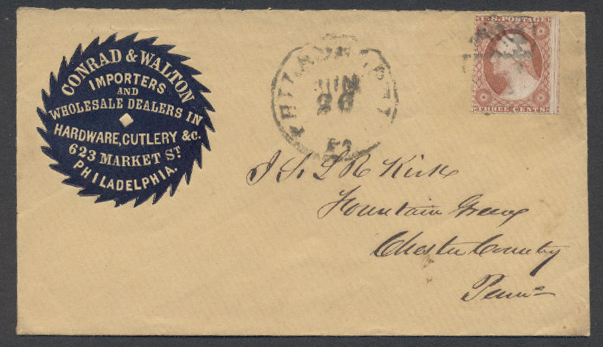 CONRAD & WALTON
IMPORTERS
AND
WHOLESALE DEALERS IN
HARDWARE, CUTLERY &c.
623 MARKET ST
PHILADELPHIA.
JUN
26
U.S. POSTAGE
THREE CENTS
Kirk
Fountain Green
Chester County
Penna